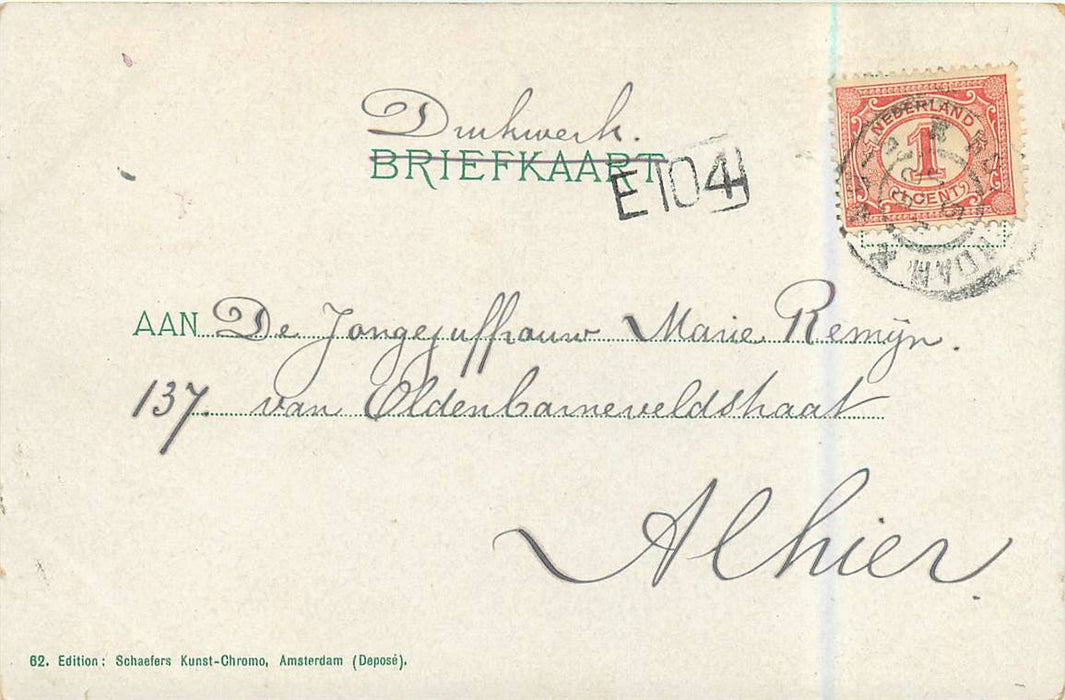 Drukwerk.
BRIEFKAART
E104
NEDERLAND
1
CENT
AAN De Jongejuffrouw Marie Remijn.
137. van Oldenbarneveldstraat
Alhier
62. Edition: Schaefers Kunst-Chromo, Amsterdam (Deposé).